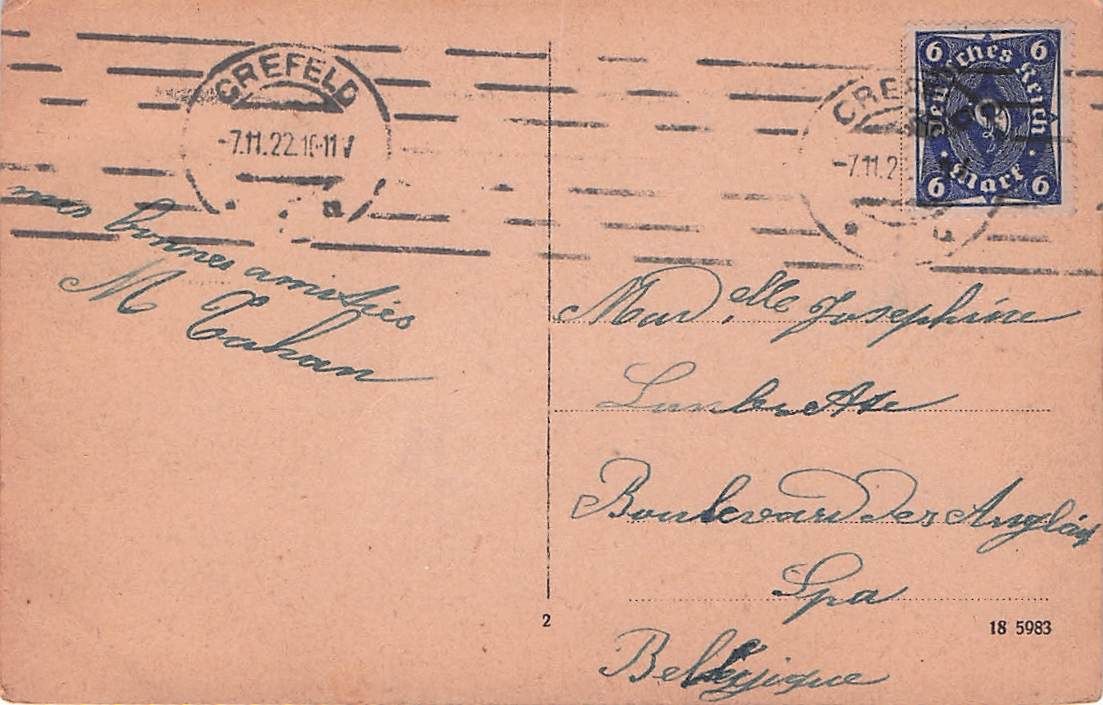 CREFELD
-7.11.22.10-11 V
a
CREFELD
-7.11.2
6 6
Deutsches Reich
6 Mark 6
mes bonnes amitiés
M Cahan
Mad.elle Josephine
Boulevard des Anglais
Spa
Belgique
2
18 5983